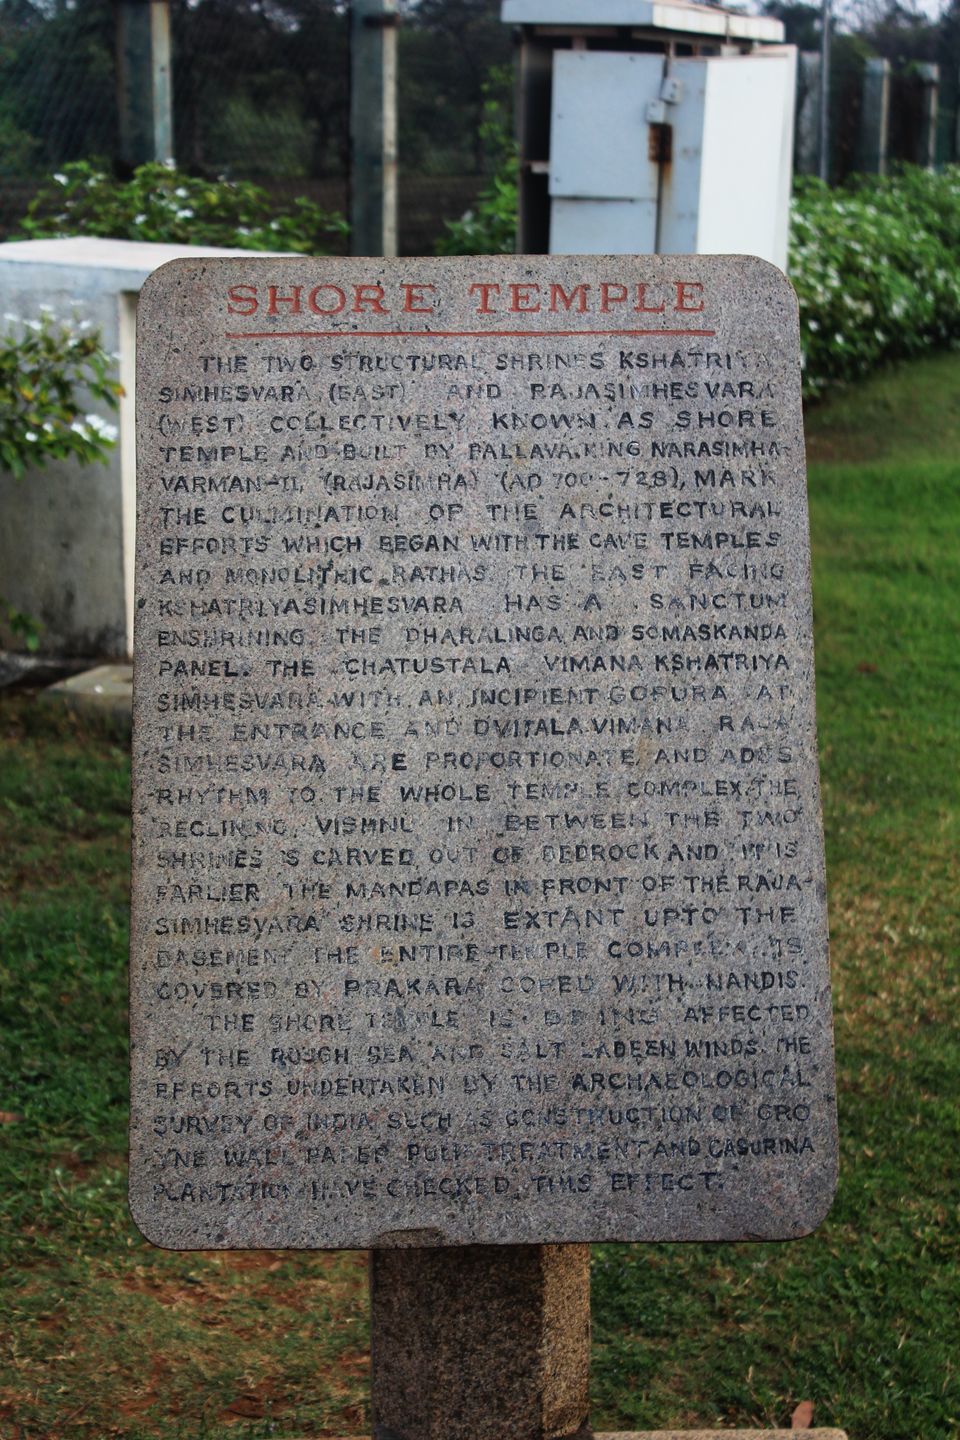 SHORE TEMPLE
THE TWO STRUCTURAL SHRINES KSHATRIYA
SIMHESVARA (EAST) AND RAJASIMHESVARA
(WEST) COLLECTIVELY KNOWN AS SHORE
TEMPLE AND BUILT BY PALLAVA KING NARASIMHA-
VARMAN-II, (RAJASIMHA) (AD 700-728), MARK
THE CULMINATION OF THE ARCHITECTURAL
EFFORTS WHICH BEGAN WITH THE CAVE TEMPLES
AND MONOLITHIC RATHAS. THE EAST FACING
KSHATRIYASIMHESVARA HAS A SANCTUM
ENSHRINING THE DHARALINGA AND SOMASKANDA
PANEL. THE CHATUSTALA VIMANA KSHATRIYA
SIMHESVARA WITH AN INCIPIENT GOPURA AT
THE ENTRANCE AND DVITALA VIMANA RAJA
SIMHESVARA ARE PROPORTIONATE AND ADDS
RHYTHM TO THE WHOLE TEMPLE COMPLEX. THE
RECLINING VISHNU IN BETWEEN THE TWO
SHRINES IS CARVED OUT OF BEDROCK AND IT IS
EARLIER THE MANDAPAS IN FRONT OF THE RAJA-
SIMHESVARA SHRINE IS EXTANT UPTO THE
BASEMENT THE ENTIRE TEMPLE COMPLEX IS
COVERED BY PRAKARA COPED WITH NANDIS.
THE SHORE TEMPLE IS BEING AFFECTED
BY THE ROUGH SEA AND SALT LADEEN WINDS. THE
EFFORTS UNDERTAKEN BY THE ARCHAEOLOGICAL
SURVEY OF INDIA SUCH AS CONSTRUCTION OF GRO
YNE WALL PAPER PULP TREATMENT AND CASURINA
PLANTATION HAVE CHECKED THIS EFFECT.